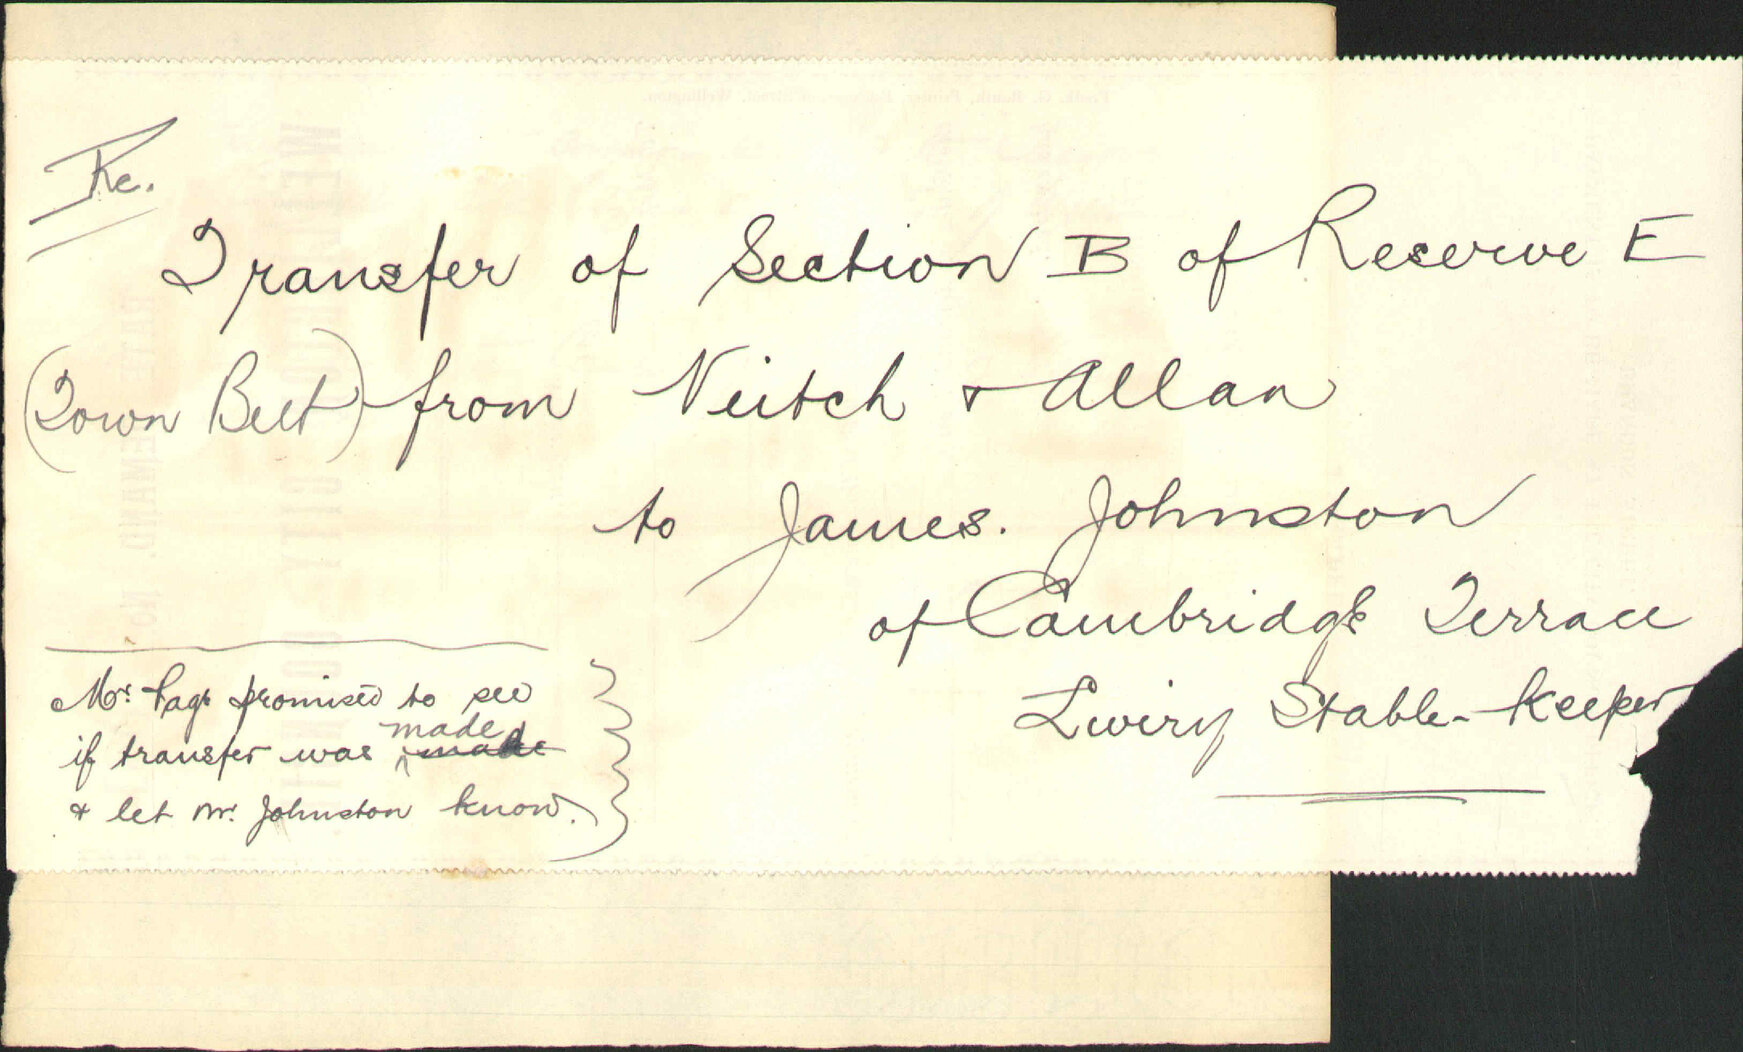 Re.
Transfer of Section B of Reserve E
(Town Belt) from Veitch & Allan
to James. Johnston
of Cambridge Terrace
Livery Stable-Keeper
Mr. Page promised to see
if transfer was made made
& let Mr. Johnston know.